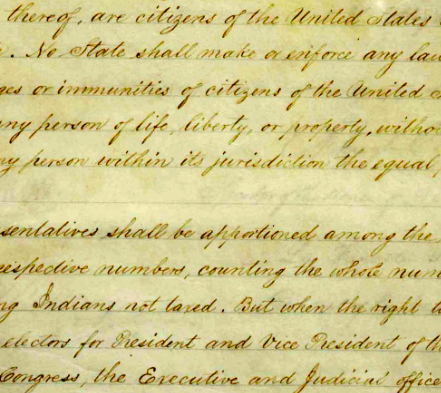 thereof, are citizens of the United States
. No State shall make or enforce any law
ges or immunities of citizens of the United S
any person of life, liberty, or property, witho
ny person within its jurisdiction the equal
sentatives shall be apportioned among the
respective numbers, counting the whole num
ng Indians not taxed. But when the right t
electors for President and Vice President of th
Congress, the Executive and Judicial office